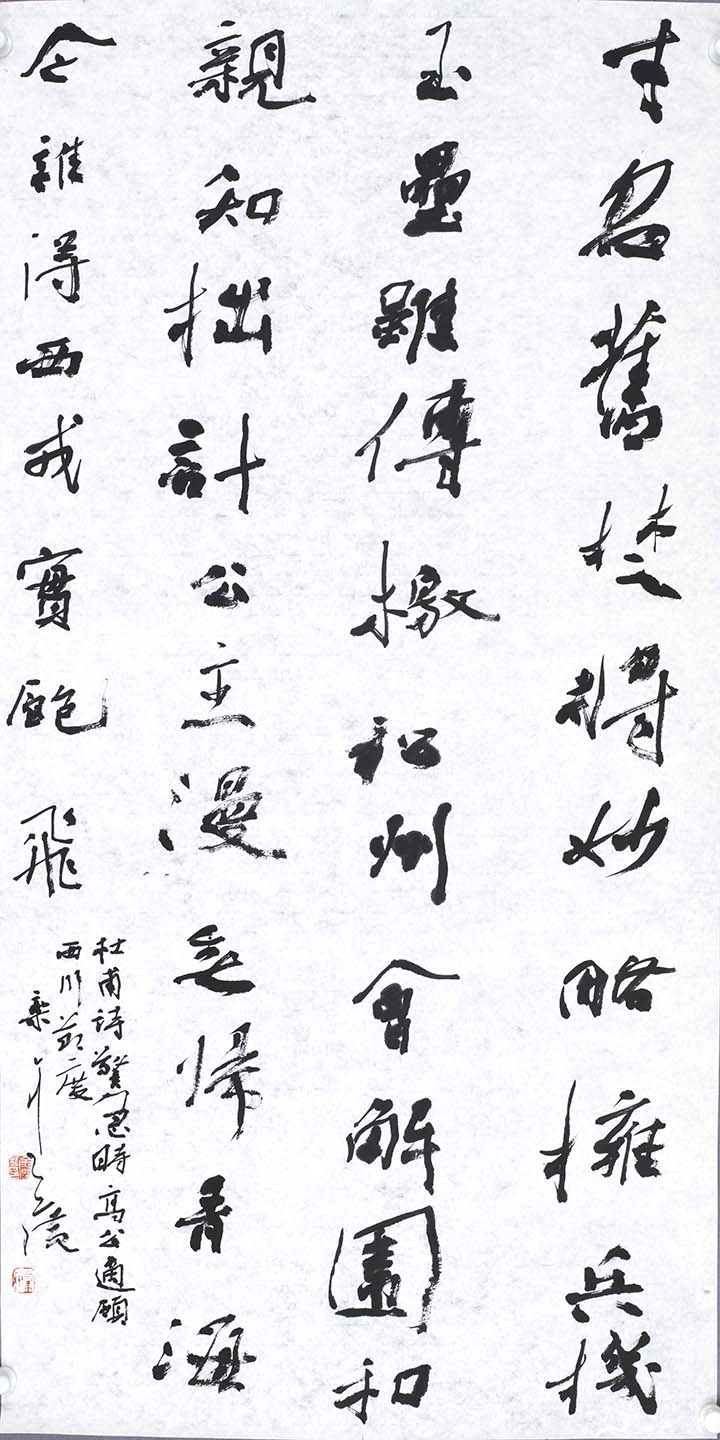 才名舊楚將妙略擁兵機
玉壘雖傳檄松州會解圍和
親知拙計公主漫無歸青海
今誰得西戎實飽飛
杜甫詩警急時高公適領
西川節度